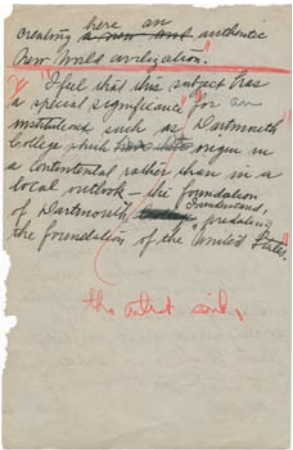 here an
creating a new and authentic
New World civilization."
"I feel that this subject has
a special significance" "for an
institution such as Dartmouth
College which has its origin in
a continental rather than in a
local outlook — the foundation
I understand,
of Dartmouth "predating
the foundation of the United States."
the artist said,